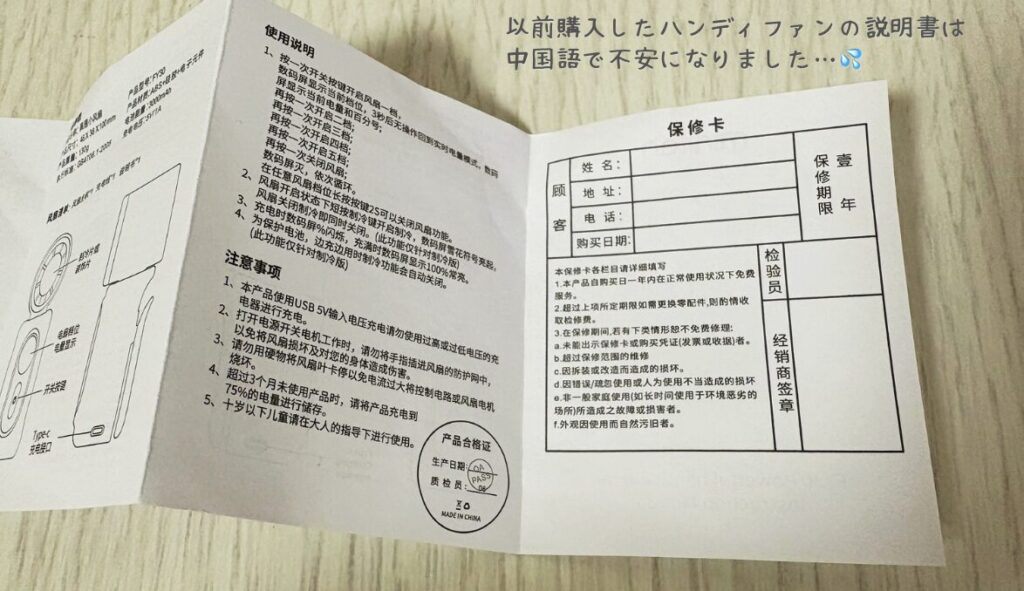 以前購入したハンディファンの説明書は
中国語で不安になりました…💦
产品型号: FY50
产品材质: ABS+硅胶+电子元件
电池容量: 3000mAh
充电电压: 5V/1A
电扇档位
电量显示
开关按键
Type-c
充电接口
使用说明
1、按一次开关按键开启风扇一档,
数码屏显示当前档位, 3秒后无操作回到实时电量模式, 数码
屏显示当前电量和百分号;
再按一次开启二档;
再按一次开启三档;
再按一次开启四档;
再按一次开启五档;
再按一次关闭风扇;
数码屏灭, 依次循环。
在任意风扇档位长按按键2S可以关闭风扇功能。
2、风扇开启状态下短按制冷键开启制冷, 数码屏雪花符号亮起。
风扇关闭制冷即同时关闭。(此功能仅针对制冷版)
3、充电时数码屏%闪烁, 充满时数码屏显示100%常亮。
4、为保护电池, 边充边用时制冷功能会自动关闭。
(此功能仅针对制冷版)
注意事项
1、本产品使用USB 5V输入电压充电请勿使用过高或过低电压的充
电器进行充电。
2、打开电源开关电机工作时, 请勿将手指插进风扇的防护网中,
以免将风扇损坏及对您的身体造成伤害。
3、请勿用硬物将风扇叶卡停以免电流过大将控制电路或风扇电机
烧坏。
4、超过3个月未使用产品时, 请将产品充电到
75%的电量进行储存。
5、十岁以下儿童请在大人的指导下进行使用。
产品合格证
生产日期:
质 检 员:
QA
PASS
06
MADE IN CHINA
保修卡
顾客
姓 名:
地 址:
电 话:
购买日期:
保修期限
壹年
本保修卡各栏目请详细填写
1.本产品自购买日一年内在正常使用状况下免费
服务。
2.超过上项所定期限如需更换零配件,则酌情收
取检修费。
3.在保修期间,若有下类情形恕不免费修理:
a.未能出示保修卡或购买凭证(发票或收据)者。
b.超过保修范围的维修
c.因拆装或改造而造成的损坏。
d.因错误/疏忽使用或人为使用不当造成的损坏
e.非一般家庭使用(如长时间使用于环境恶劣的
场所)所造成之故障或损害者。
f.外观因使用而自然污旧者。
检验员
经销商签章